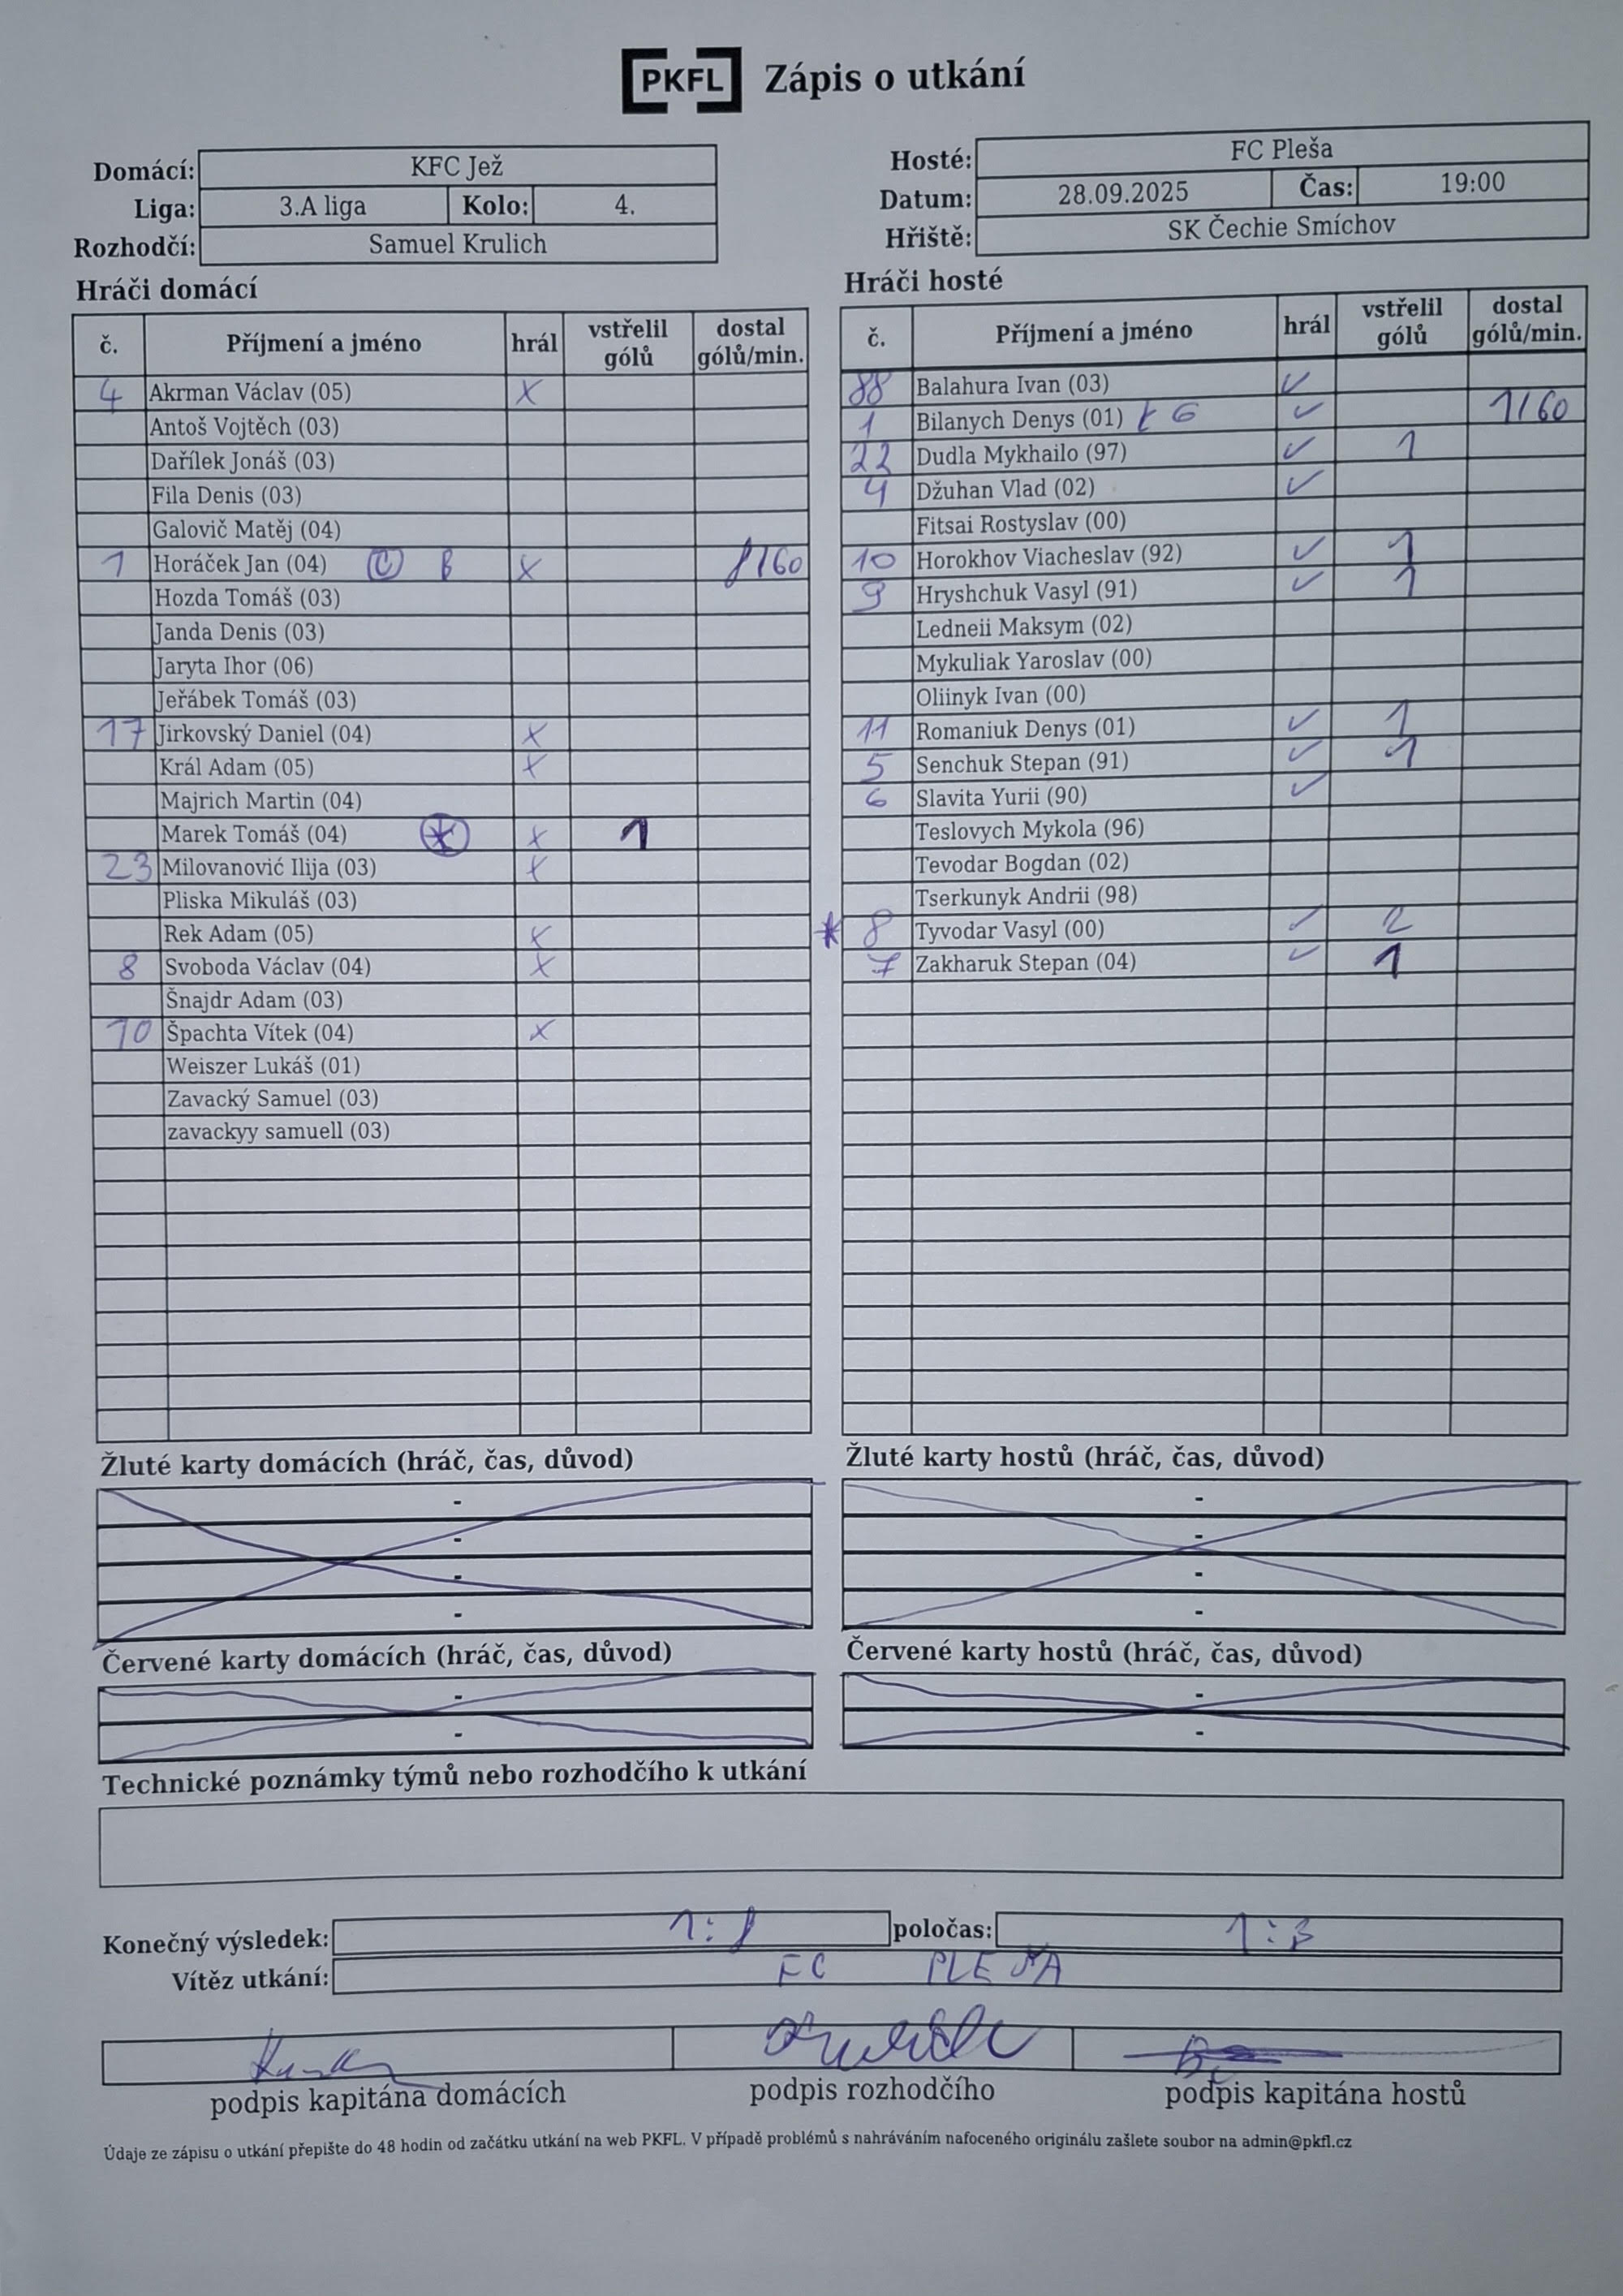 PKFL Zápis o utkání
Domácí: KFC Jež
Liga: 3.A liga Kolo: 4.
Rozhodčí: Samuel Krulich
Hosté: FC Pleša
Datum: 28.09.2025 Čas: 19:00
Hřiště: SK Čechie Smíchov
Hráči domácí
č. Příjmení a jméno hrál vstřelil gólů dostal gólů/min.
4 Akrman Václav (05) x
Antoš Vojtěch (03)
Dařílek Jonáš (03)
Fila Denis (03)
Galovič Matěj (04)
1 Horáček Jan (04) C B x 8/60
Hozda Tomáš (03)
Janda Denis (03)
Jaryta Ihor (06)
Jeřábek Tomáš (03)
17 Jirkovský Daniel (04) x
Král Adam (05) x
Majrich Martin (04)
Marek Tomáš (04) * x 1
23 Milovanović Ilija (03) x
Pliska Mikuláš (03)
Rek Adam (05) x
8 Svoboda Václav (04) x
Šnajdr Adam (03)
10 Špachta Vítek (04) x
Weiszer Lukáš (01)
Zavacký Samuel (03)
zavackyy samuell (03)
Hráči hosté
č. Příjmení a jméno hrál vstřelil gólů dostal gólů/min.
88 Balahura Ivan (03) ✓
1 Bilanych Denys (01) G ✓ 1/60
22 Dudla Mykhailo (97) ✓ 1
4 Džuhan Vlad (02) ✓
Fitsai Rostyslav (00)
10 Horokhov Viacheslav (92) ✓ 1
9 Hryshchuk Vasyl (91) ✓ 1
Ledneii Maksym (02)
Mykuliak Yaroslav (00)
Oliinyk Ivan (00)
11 Romaniuk Denys (01) ✓ 1
5 Senchuk Stepan (91) ✓ 1
6 Slavita Yurii (90) ✓
Teslovych Mykola (96)
Tevodar Bogdan (02)
Tserkunyk Andrii (98)
* 8 Tyvodar Vasyl (00) ✓ 2
7 Zakharuk Stepan (04) ✓ 1
Žluté karty domácích (hráč, čas, důvod)
-
-
-
-
Žluté karty hostů (hráč, čas, důvod)
-
-
-
-
Červené karty domácích (hráč, čas, důvod)
-
-
Červené karty hostů (hráč, čas, důvod)
-
-
Technické poznámky týmů nebo rozhodčího k utkání
Konečný výsledek: 1:8 poločas: 1:3
Vítěz utkání: FC PLEŠA
podpis kapitána domácích podpis rozhodčího podpis kapitána hostů
Údaje ze zápisu o utkání přepište do 48 hodin od začátku utkání na web PKFL. V případě problémů s nahráváním nafoceného originálu zašlete soubor na admin@pkfl.cz